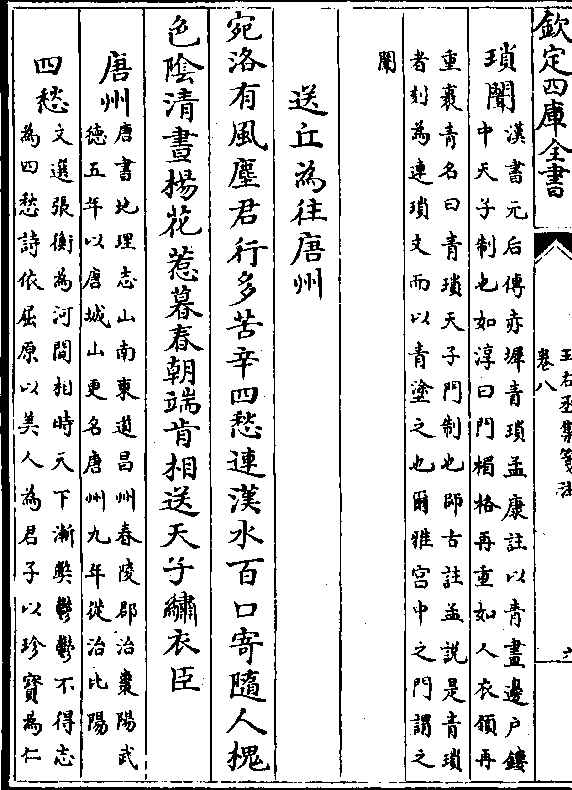 欽定四庫全書
王右丞集箋注
卷八
瑣闈漢書元后傳赤墀青瑣孟康註以青畫邊户鏤
中天子制也如淳曰門楣格再重如人衣領再
重裏青名曰青瑣天子門制也師古註孟説是青瑣
者刻為連瑣文而以青塗之也爾雅宫中之門謂之
闈
送丘為往唐州
宛洛有風塵君行多苦辛四愁連漢水百口寄隨人槐
色陰清晝楊花惹暮春朝端肯相送天子繡衣臣
唐州唐書地理志山南東道昌州舂陵郡治棗陽武
徳五年以唐城山更名唐州九年徙治比陽
四愁文選張衡為河間相時天下漸弊鬱鬱不得志
為四愁詩依屈原以美人為君子以珍寳為仁